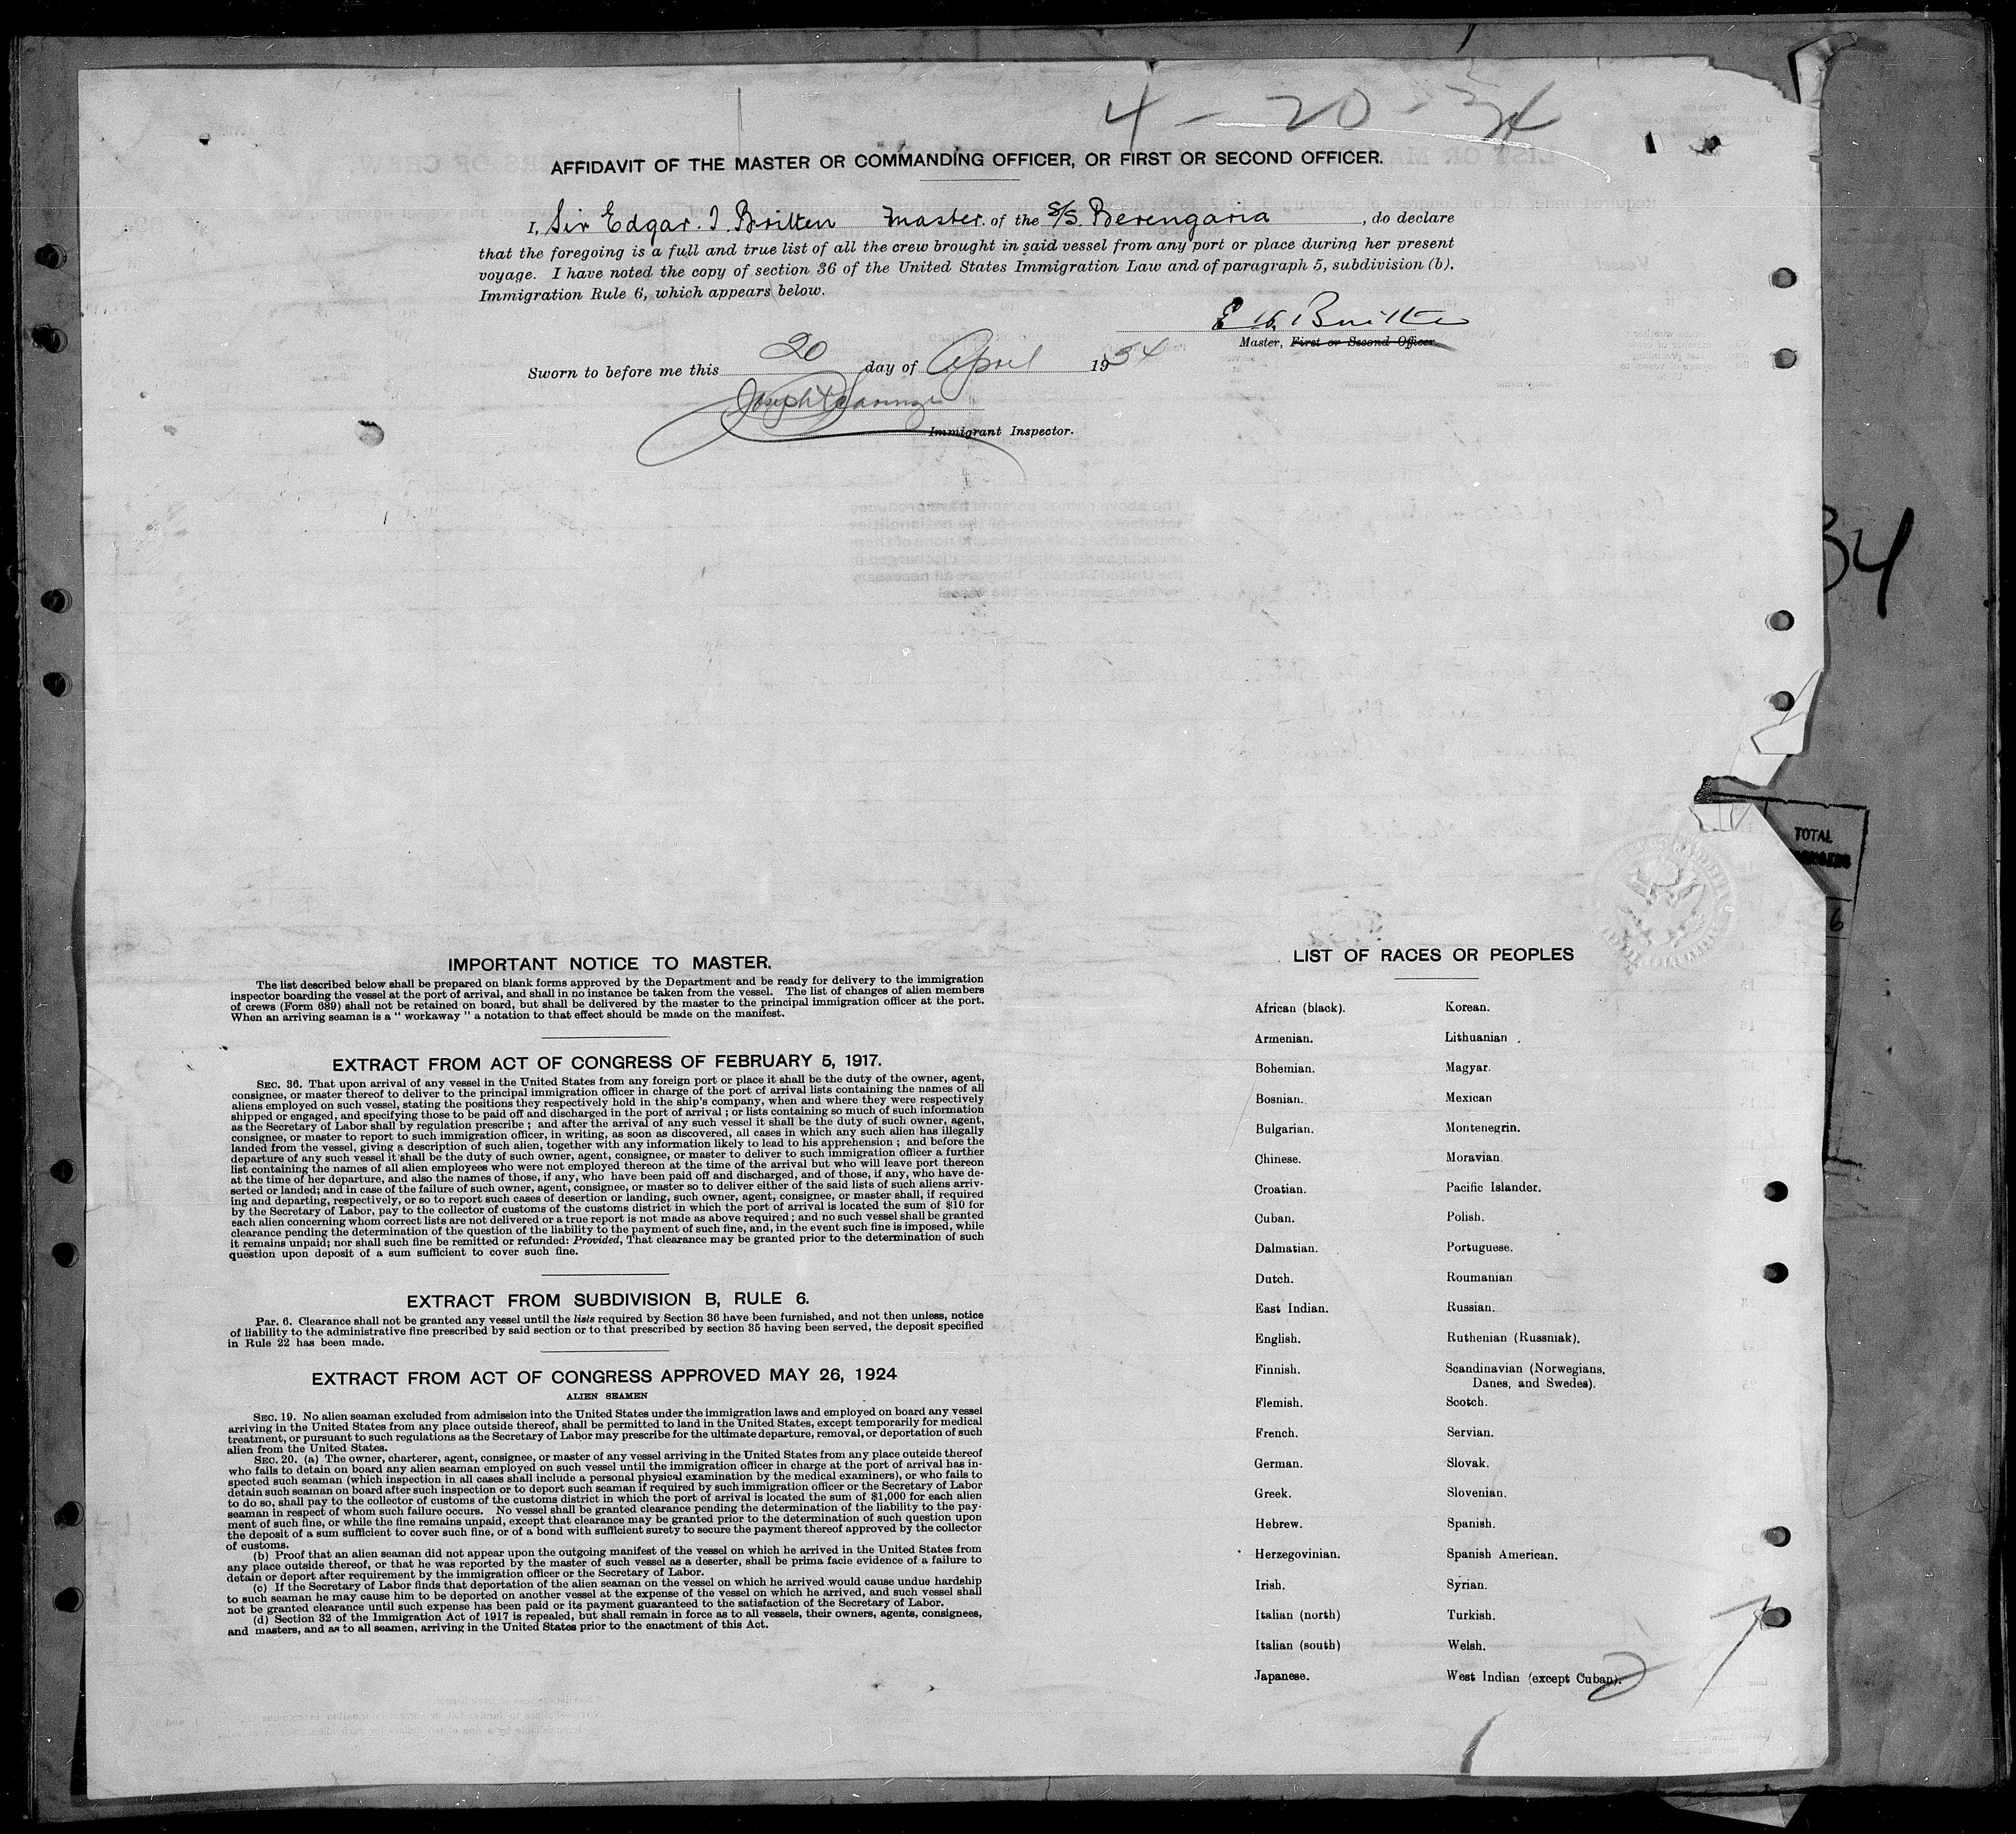 4 - 20 - 34
AFFIDAVIT OF THE MASTER OR COMMANDING OFFICER, OR FIRST OR SECOND OFFICER.
I, Sir Edgar. T. Britten Master. of the S/S. Berengaria, do declare
that the foregoing is a full and true list of all the crew brought in said vessel from any port or place during her present
voyage. I have noted the copy of section 36 of the United States Immigration Law and of paragraph 5, subdivision (b).
Immigration Rule 6, which appears below.
Britten
Master, First or Second Officer.
Sworn to before me this 20 day of April 1934
Joseph
Immigrant Inspector.
34
TOTAL
6
IMPORTANT NOTICE TO MASTER.
The list described below shall be prepared on blank forms approved by the Department and be ready for delivery to the immigration
inspector boarding the vessel at the port of arrival, and shall in no instance be taken from the vessel. The list of changes of alien members
of crews (Form 689) shall not be retained on board, but shall be delivered by the master to the principal immigration officer at the port.
When an arriving seaman is a " workaway " a notation to that effect should be made on the manifest.
EXTRACT FROM ACT OF CONGRESS OF FEBRUARY 5, 1917.
SEC. 36. That upon arrival of any vessel in the United States from any foreign port or place it shall be the duty of the owner, agent,
consignee, or master thereof to deliver to the principal immigration officer in charge of the port of arrival lists containing the names of all
aliens employed on such vessel, stating the positions they respectively hold in the ship's company, when and where they were respectively
shipped or engaged, and specifying those to be paid off and discharged in the port of arrival ; or lists containing so much of such information
as the Secretary of Labor shall by regulation prescribe ; and after the arrival of any such vessel it shall be the duty of such owner, agent,
consignee, or master to report to such immigration officer, in writing, as soon as discovered, all cases in which any such alien has illegally
landed from the vessel, giving a description of such alien, together with any information likely to lead to his apprehension ; and before the
departure of any such vessel it shall be the duty of such owner, agent, consignee, or master to deliver to such immigration officer a further
list containing the names of all alien employees who were not employed thereon at the time of the arrival but who will leave port thereon
at the time of her departure, and also the names of those, if any, who have been paid off and discharged, and of those, if any, who have de-
serted or landed; and in case of the failure of such owner, agent, consignee, or master so to deliver either of the said lists of such aliens arriv-
ing and departing, respectively, or so to report such cases of desertion or landing, such owner, agent, consignee, or master shall, if required
by the Secretary of Labor, pay to the collector of customs of the customs district in which the port of arrival is located the sum of $10 for
each alien concerning whom correct lists are not delivered or a true report is not made as above required ; and no such vessel shall be granted
clearance pending the determination of the question of the liability to the payment of such fine, and, in the event such fine is imposed, while
it remains unpaid; nor shall such fine be remitted or refunded: Provided, That clearance may be granted prior to the determination of such
question upon deposit of a sum sufficient to cover such fine.
EXTRACT FROM SUBDIVISION B, RULE 6.
Par. 6. Clearance shall not be granted any vessel until the lists required by Section 36 have been furnished, and not then unless, notice
of liability to the administrative fine prescribed by said section or to that prescribed by section 35 having been served, the deposit specified
in Rule 22 has been made.
EXTRACT FROM ACT OF CONGRESS APPROVED MAY 26, 1924
ALIEN SEAMEN
SEC. 19. No alien seaman excluded from admission into the United States under the immigration laws and employed on board any vessel
arriving in the United States from any place outside thereof, shall be permitted to land in the United States, except temporarily for medical
treatment, or pursuant to such regulations as the Secretary of Labor may prescribe for the ultimate departure, removal, or deportation of such
alien from the United States.
SEC. 20. (a) The owner, charterer, agent, consignee, or master of any vessel arriving in the United States from any place outside thereof
who fails to detain on board any alien seaman employed on such vessel until the immigration officer in charge at the port of arrival has in-
spected such seaman (which inspection in all cases shall include a personal physical examination by the medical examiners), or who fails to
detain such seaman on board after such inspection or to deport such seaman if required by such immigration officer or the Secretary of Labor
to do so, shall pay to the collector of customs of the customs district in which the port of arrival is located the sum of $1,000 for each alien
seaman in respect of whom such failure occurs. No vessel shall be granted clearance pending the determination of the liability to the pay-
ment of such fine, or while the fine remains unpaid, except that clearance may be granted prior to the determination of such question upon
the deposit of a sum sufficient to cover such fine, or of a bond with sufficient surety to secure the payment thereof approved by the collector
of customs.
(b) Proof that an alien seaman did not appear upon the outgoing manifest of the vessel on which he arrived in the United States from
any place outside thereof, or that he was reported by the master of such vessel as a deserter, shall be prima facie evidence of a failure to
detain or deport after requirement by the immigration officer or the Secretary of Labor.
(c) If the Secretary of Labor finds that deportation of the alien seaman on the vessel on which he arrived would cause undue hardship
to such seaman he may cause him to be deported on another vessel at the expense of the vessel on which he arrived, and such vessel shall
not be granted clearance until such expense has been paid or its payment guaranteed to the satisfaction of the Secretary of Labor.
(d) Section 32 of the Immigration Act of 1917 is repealed, but shall remain in force as to all vessels, their owners, agents, consignees,
and masters, and as to all seamen, arriving in the United States prior to the enactment of this Act.
LIST OF RACES OR PEOPLES
African (black). Korean.
Armenian. Lithuanian .
Bohemian. Magyar.
Bosnian. Mexican
Bulgarian. Montenegrin.
Chinese. Moravian.
Croatian. Pacific Islander.
Cuban. Polish.
Dalmatian. Portuguese.
Dutch. Roumanian
East Indian. Russian.
English. Ruthenian (Russniak).
Finnish. Scandinavian (Norwegians,
Danes, and Swedes).
Flemish. Scotch.
French. Servian.
German. Slovak.
Greek. Slovenian.
Hebrew. Spanish.
Herzegovinian. Spanish American.
Irish. Syrian.
Italian (north) Turkish.
Italian (south) Welsh.
Japanese. West Indian (except Cuban).